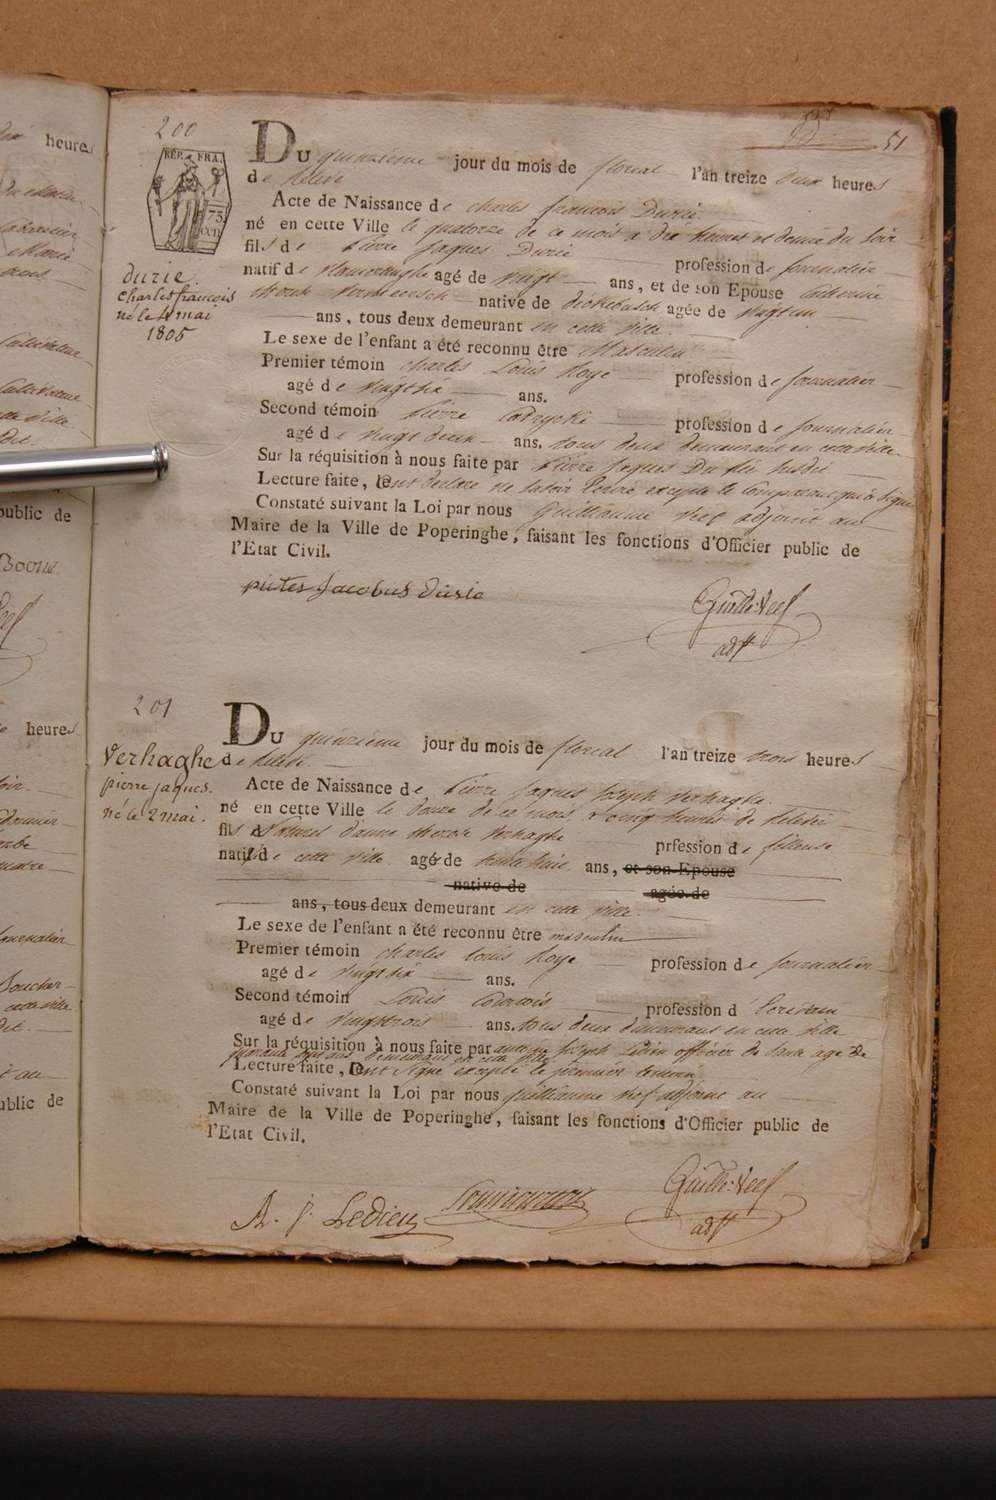 heures
public de
heures
public de
51
200
RÉP. FRA.
75
durie
charles francois
né le 4 mai
1805
DU quinzième jour du mois de floreal l'an treize deux heures
de relevé
Acte de Naissance de charles francois Durie
né en cette Ville le quatorze de ce mois a dix heures et demie du soir
fils de Pierre Jaques Durie profession de journalier
natif de agé de vingt ans, et de son Epouse
native de agée de vingt un
ans, tous deux demeurant en cette ville
Le sexe de l'enfant a été reconnu être Masculin
Premier témoin charles Louis hoye profession de journalier
agé de vingt six ans.
Second témoin Pierre profession de journalier
agé de vingt deux ans. tous deux demeurant en cette ville
Sur la réquisition à nous faite par Pierre Jaques Durie susdit
Lecture faite, ont declaré ne savoir ecrire excepté le comparant qui a signé
Constaté suivant la Loi par nous Guilliaume Veef adjoint au
Maire de la Ville de Poperinghe, faisant les fonctions d'Officier public de
l'Etat Civil.
pieter Jacobus durie
Guille: Veef
adjt
201
Verhaghe
pierre jaques.
né le 2 mai.
DU quinzième jour du mois de floreal l'an treize trois heures
de relevé
Acte de Naissance de Pierre Jaques Joseph Verhaghe
né en cette Ville le douze de ce mois a cinq heures de relevée
fils naturel d'anne therese Verhaghe prfession de fileuse
natif de cette ville agé de trente huit ans, et son Epouse
native de agée de
ans, tous deux demeurant en cette ville
Le sexe de l'enfant a été reconnu être masculin
Premier témoin charles Louis hoye profession de journalier
agé de vingt six ans.
Second témoin Louis Courtois profession d ecrivain
agé de vingt trois ans. tous deux demeurant en cette ville
Sur la réquisition à nous faite par antoine Joseph Ledieu officier de santé agé de
quarante huit ans demeurant en cette ville
Lecture faite, ont signé excepté le premier temoin
Constaté suivant la Loi par nous guilliaume Veef adjoint au
Maire de la Ville de Poperinghe, faisant les fonctions d'Officier public de
l'Etat Civil.
A. J. Ledieu
Guille: Veef
adjt